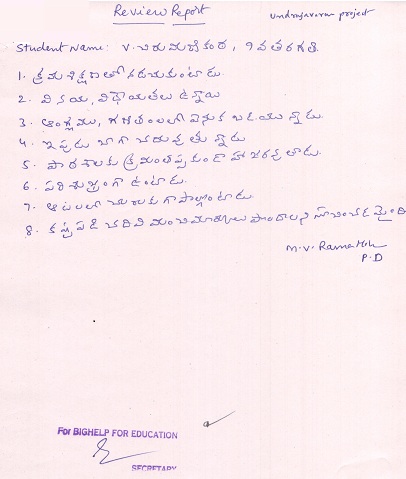 Review Report
Undrajavaram project
Student Name: V. వీరమణికంఠ, 9వ తరగతి
1. క్రమశిక్షణతో నడుచుకుంటాడు.
2. వినయ, విధేయతలు ఉన్నాయి
3. ఆంగ్లము, గణితంలలో వెనుకబడియున్నాడు.
4. ఇప్పుడు బాగా చదువుతున్నాడు
5. పాఠశాలకు క్రమంతప్పకుండా హాజరవుతాడు.
6. పరిశుభ్రంగా ఉంటాడు.
7. ఆటలలో చురుకుగా పాల్గొంటాడు.
8. కష్టపడి చదివి మంచి మార్కులు పొందాలని సూచించడమైంది
M.V. Rama
P.D
For BIGHELP FOR EDUCATION
SECRETARY